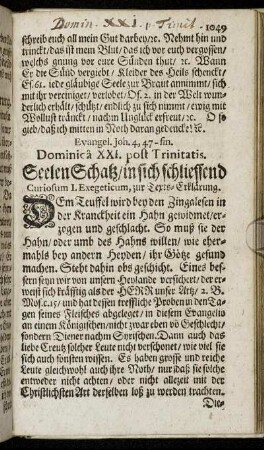 Domin. XXI. p. Trinit.
1049
schreib euch all mein Gut darbey/ꝛc. Nehmt hin und
trinckt/das ist mein Blut/das ich vor euch vergossen/
welchs gnung vor eure Sünden thut/ ꝛc. Wann
Er die Sünd vergiebt/ Kleider des Heils schenckt/
Es. 61. iede gläubige Seele zur Braut annimmt/ sich
ihr vereiniget/ verlobet/Os. 2. in der Welt wun-
derlich erhält/schützt/endlich zu sich nimmt/ewig mit
Wollust tränckt/ nach m Unglück erfreut/ ꝛc. O so
gieb/daß ich mitten in Noth daran gedencke! ꝛc.
Evangel. Joh. 4, 47-fin.
Dominicâ XXI. post Trinitatis.
Seelen Schatz/in sich schliessend
Curiosum I. Exegeticum, zur Texts-Erklärung.
DEm Teuffel wird bey den Zingalesen in
der Kranckheit ein Hahn gewidmet/er-
zogen und geschlacht. So muß sie der
Hahn/oder umb des Hahns willen/ wie eher-
mahls bey andern Heyden/ ihr Götze gesund
machen. Steht dahin obs geschicht. Eines bes-
sern seyn wir von unserm Heylande versichert/der er-
weist sich kräfftig als der HERR unser Artz/ 2. B.
Mos. c. 15/ und hat dessen treffliche Proben in den Ta-
gen seines Fleisches abgeleget/ in diesem Evangelio
an einem Königischen/nicht zwar eben vō Geschlecht/
sondern Diener nachm Syrischen. Dann auch das
liebe Creutz solcher Leute nicht verschonet/ wie viel sie
sich auch sonsten wissen. Es haben grosse und reiche
Leute gleichwohl auch ihre Noth/ nur/daß sie solche
entweder nicht achten/ oder nicht allezeit mit der
Christlichsten Art derselben loß zu werden trachten.
Die-